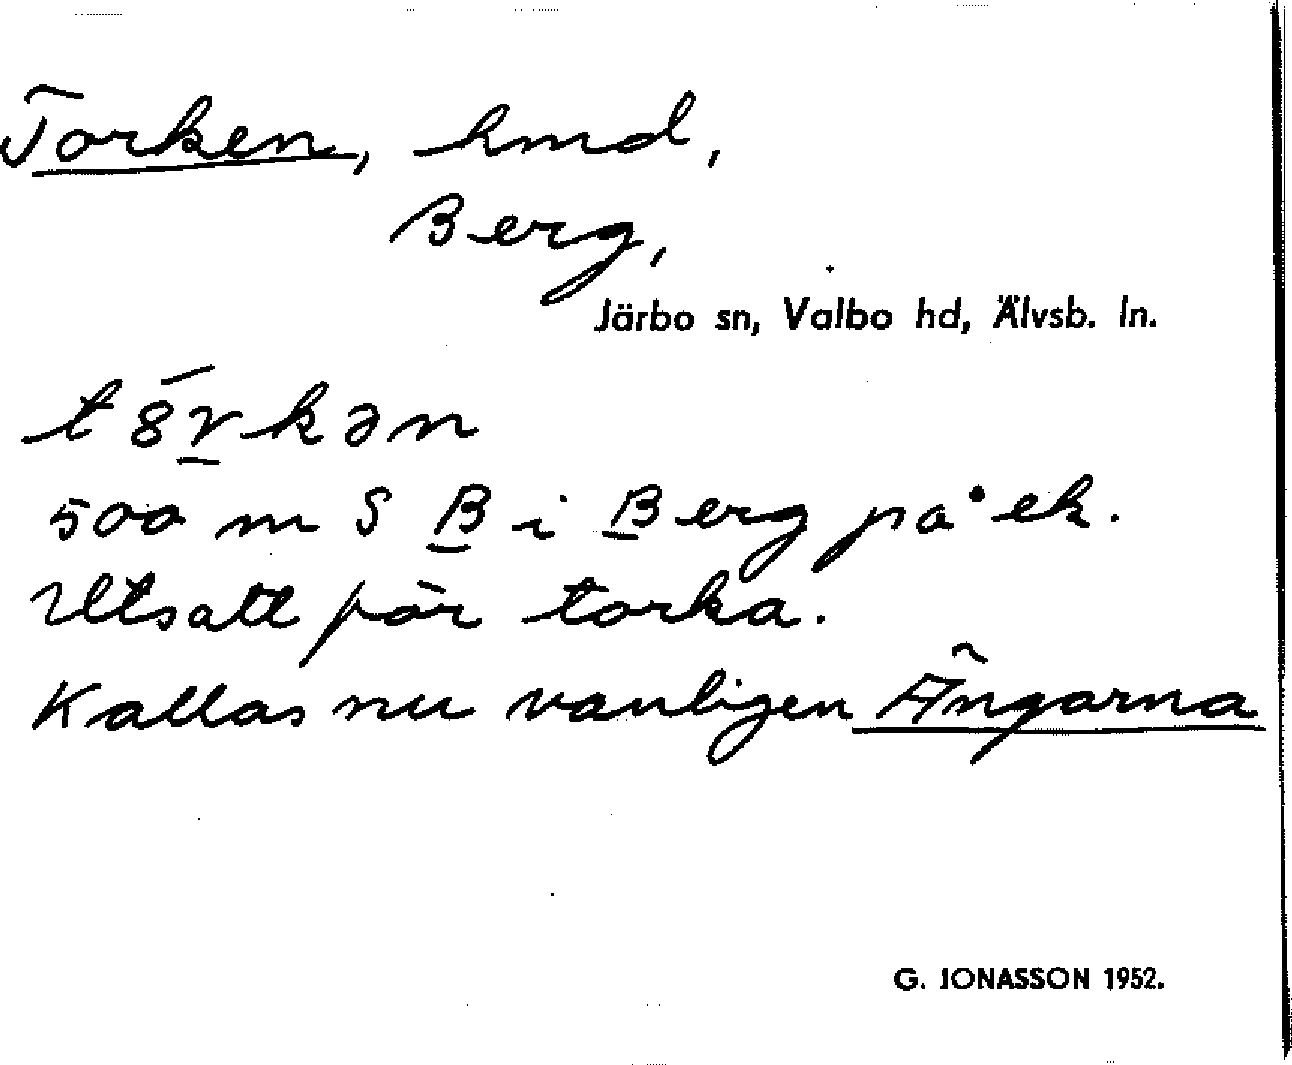 Torken, hmd,
Berg,
Järbo sn, Valbo hd, Älvsb. ln.
t8́r̲kən
500 m S B i Berg på ek.
Utsatt för torka.
Kallas nu vanligen Ängarna
G. JONASSON 1952.